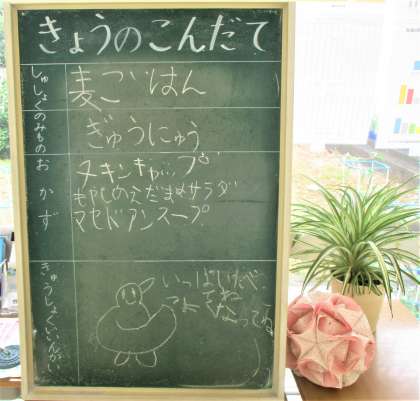 きょうのこんだて
しゅしょく
麦ごはん
のみもの
ぎゅうにゅう
おかず
チキンキャップ
もやしのえだまめサラダ
マセドアンスープ
きゅうしょくいいんかい